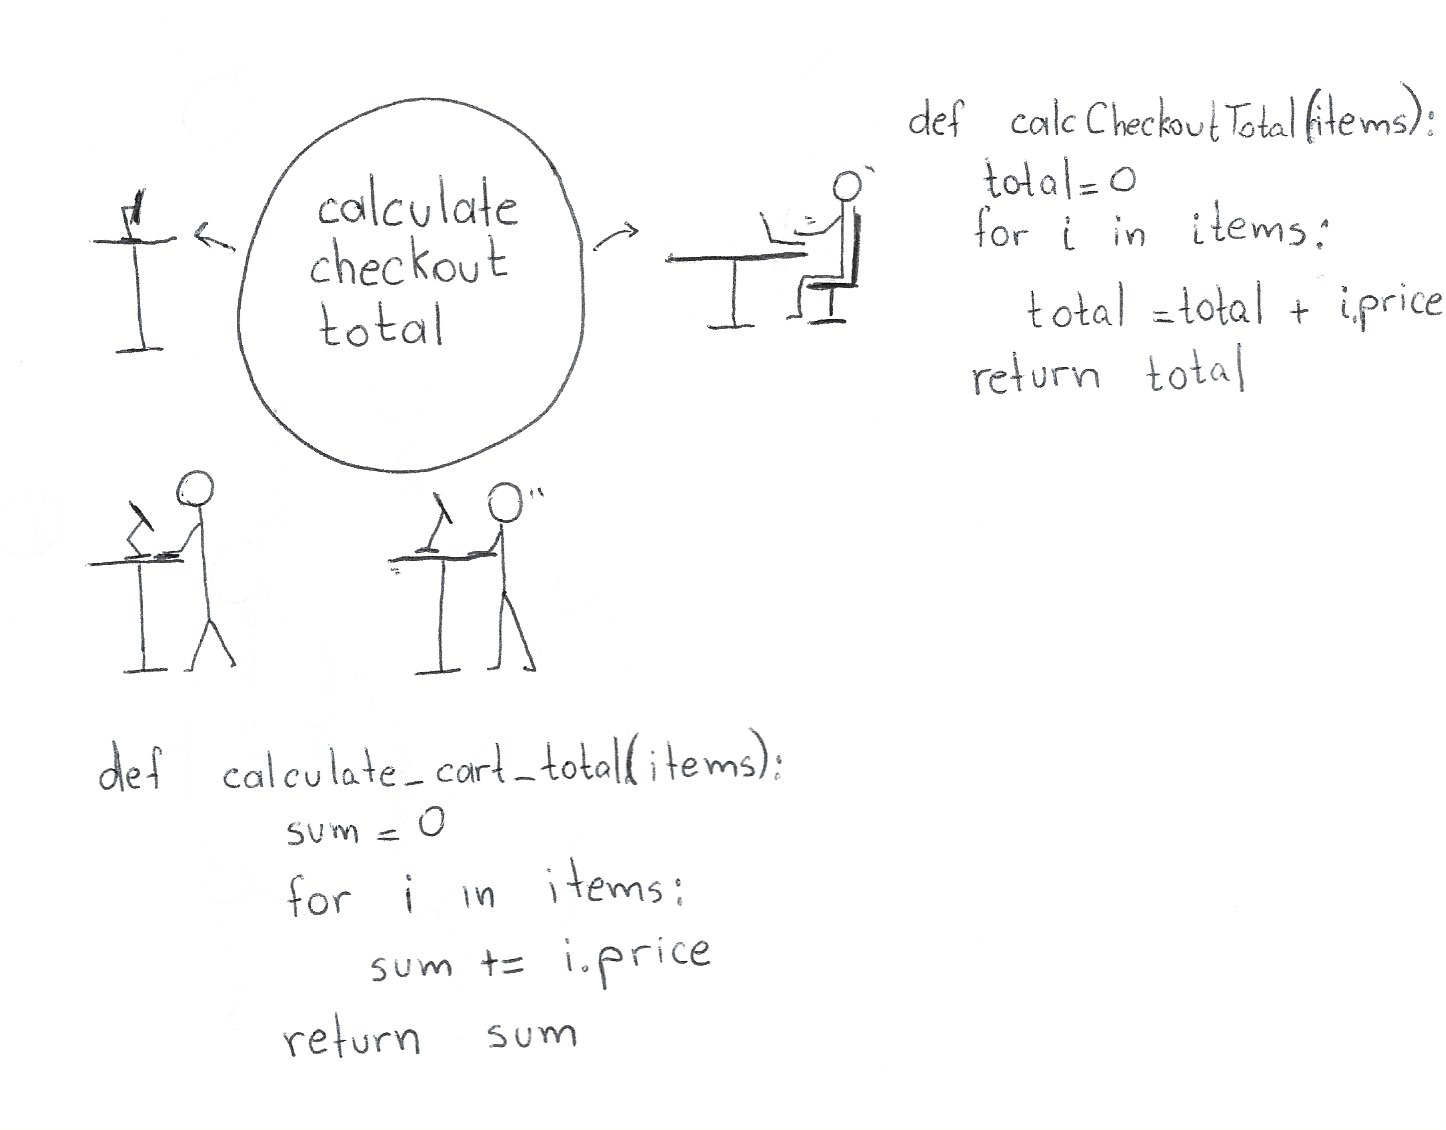 calculate
checkout
total
def calcCheckoutTotal(items):
total=0
for i in items:
total =total + i.price
return total
def calculate_cart_total(items):
sum = 0
for i in items:
sum += i.price
return sum